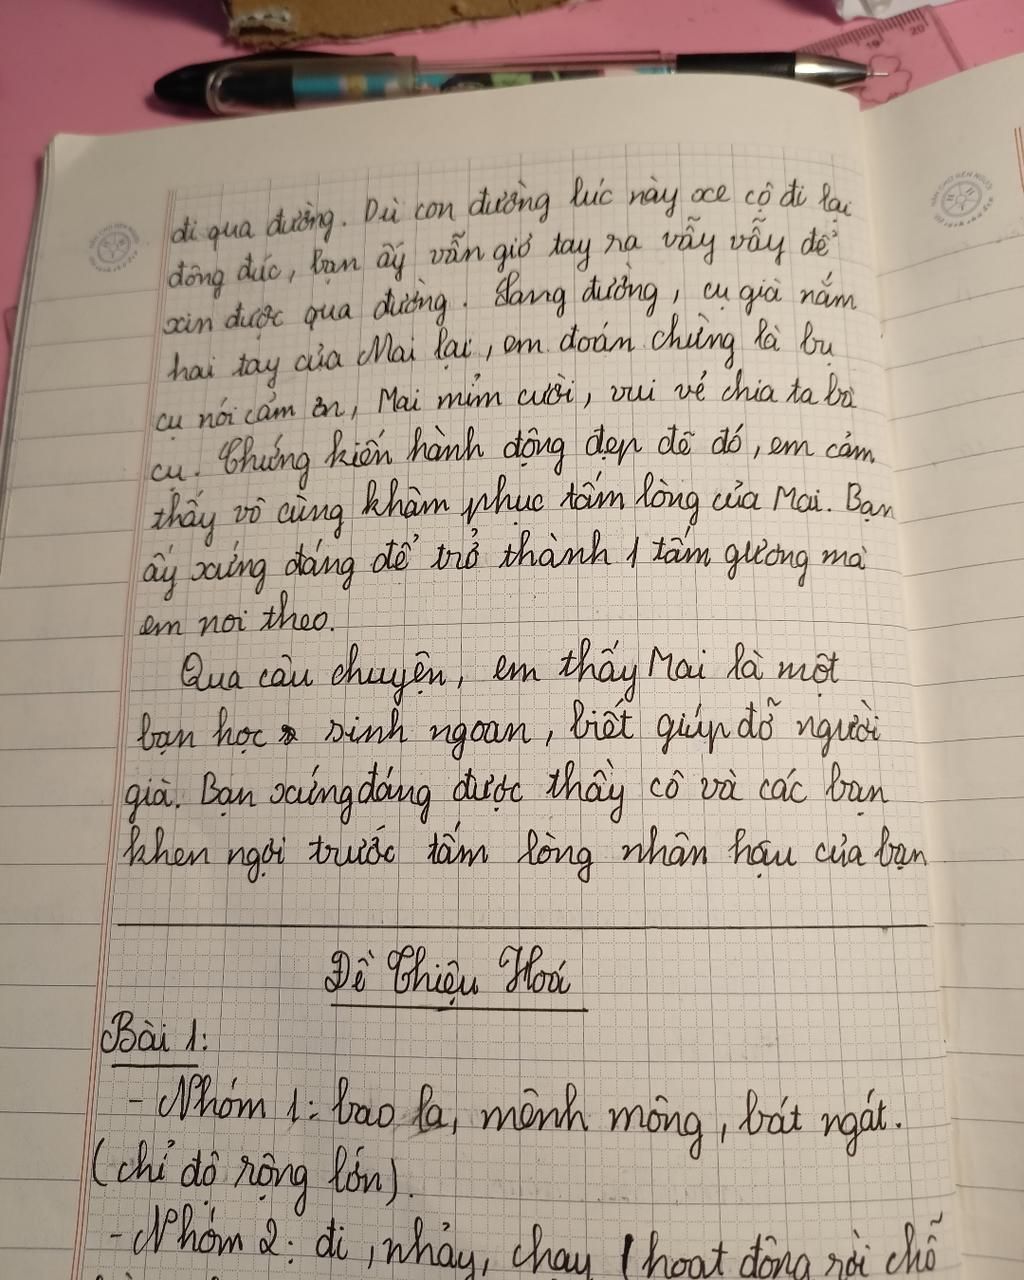 đi qua đường. Dù con đường lúc này xe cộ đi lại
đông đúc, bạn ấy vẫn giơ tay ra vẫy vẫy để
xin được qua đường. Sang đường, cụ già nắm
hai tay của Mai lại, em đoán chừng là bụ
cụ nói cảm ơn, Mai mỉm cười, vui vẻ chia ta bà
cụ. Chứng kiến hành động đẹp đẽ đó, em cảm
thấy vô cùng khâm phục tấm lòng của Mai. Bạn
ấy xứng đáng để trở thành 1 tấm gương mà
em noi theo.
Qua câu chuyện, em thấy Mai là một
bạn học sinh ngoan, biết giúp đỡ người
già. Bạn xứng đáng được thầy cô và các bạn
khen ngợi trước tấm lòng nhân hậu của bạn
Đề Thiệu Hoá
Bài 1:
- Nhóm 1: bao la, mênh mông, bát ngát.
(chỉ độ rộng lớn).
- Nhóm 2: đi, nhảy, chạy (hoạt động rời chỗ